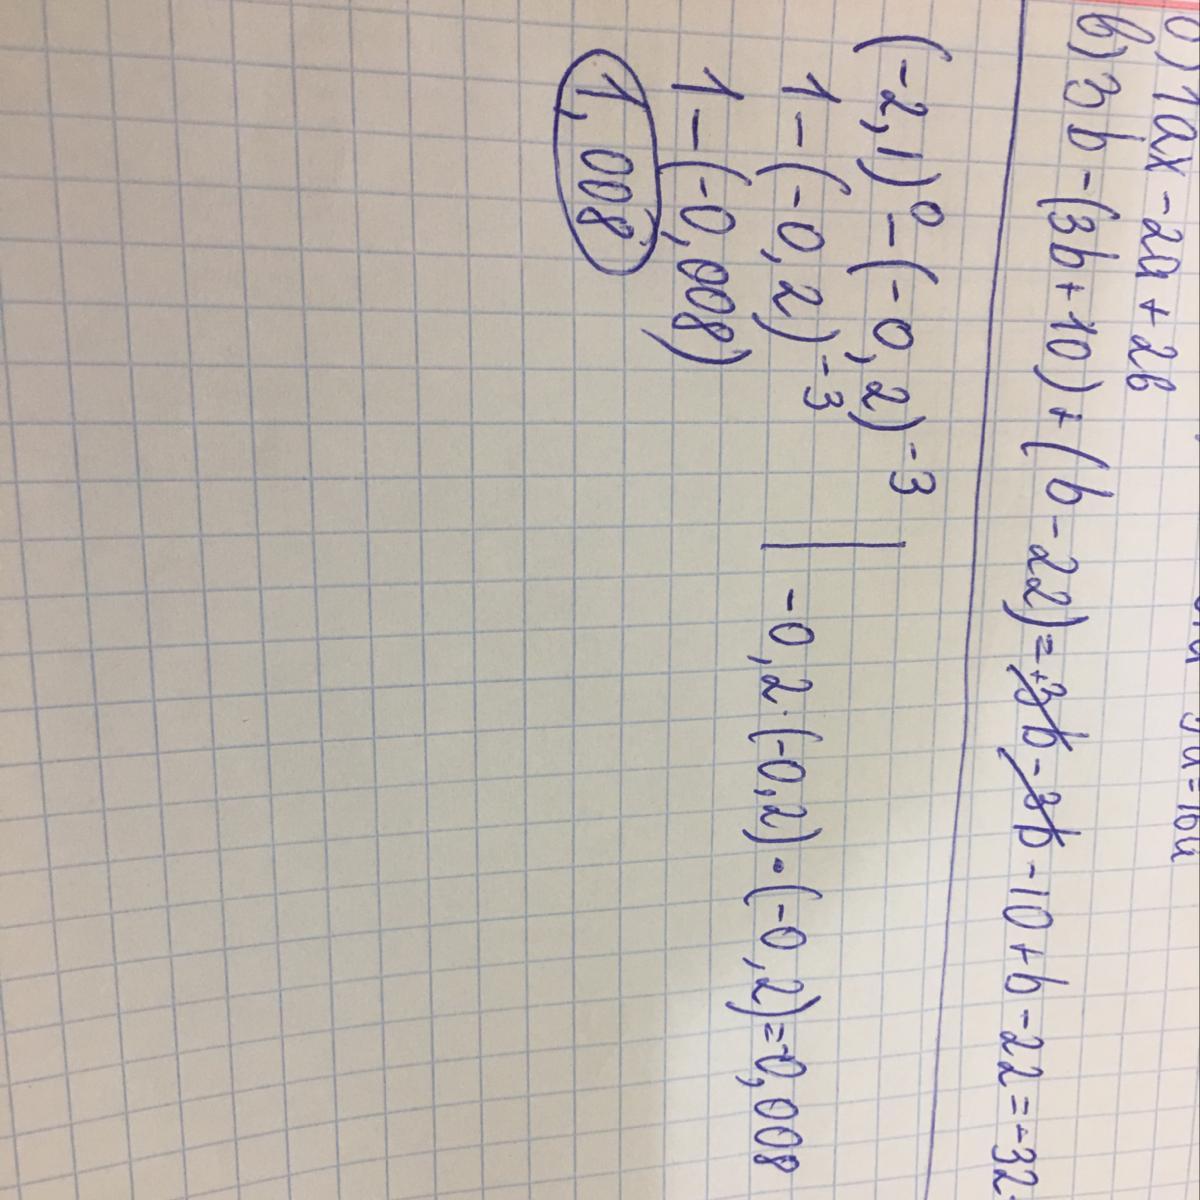 7ax - 2a + 2b
b) 3b - (3b + 10) + (b - 22) = +3b - 3b - 10 + b - 22 = -32
(-2,1)⁰ - (-0,2)⁻³
1 - (-0,2)⁻³
-0,2·(-0,2)·(-0,2)=-0,008
1 - (-0,008)
1,008